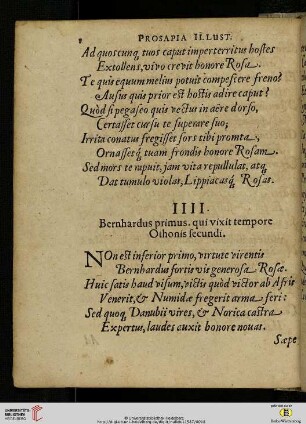 8 PROSAPIA ILLUST.
Ad quoscunq; tuos caput imperterritus hostes
Extollens, vivo crevit honore Rosa.
Te quis equum melius potuit compescere freno?
Ausus quis prior est hostis adire caput?
Quòd si pegaseo quis vectus in aëre dorso,
Certasset cursu te superare suo;
Irrita conatus fregisset fors tibi promta,
Ornasset q; tuam frondis honore Rosam.
Sed mors te rapuit, jam vita repullulat, atq;
Dat tumulo violas, Lippiacasq; Rosas.
IIII.
Bernhardus primus, qui vixit tempore
Othonis secundi.
NOn est inferior primo, virtute virentis
Bernhardus fortis vis generosa Rosæ.
Huic satis haud visum, victis quòd victor ab Afris
Venerit, & Numidæ fregerit arma feri:
Sed quoq; Danubii vires, & Norica castra
Expertus, laudes auxit honore novas.
Sæpe
UNIVERSITÄTS-
BIBLIOTHEK
HEIDELBERG
© Universitätsbibliothek Heidelberg